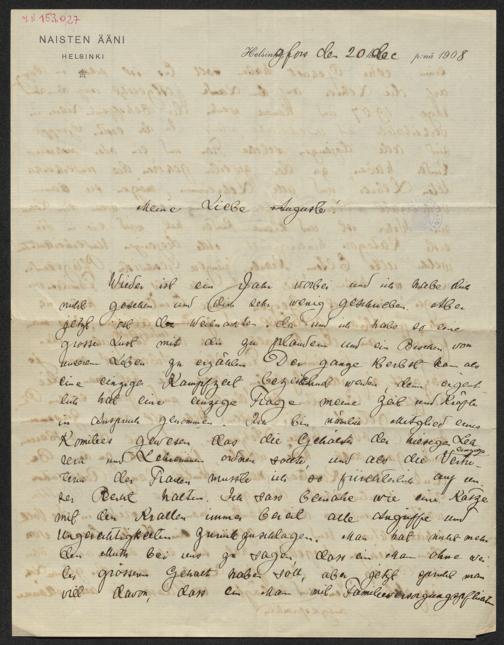 I.N. 153.027
NAISTEN ÄÄNI
HELSINKI
Helsingfors den 20 Dec p:nä 1908
Meine Liebe Auguste!
Wieder ist ein Jahr vorbei und ich habe dich
nicht gesehen und dir sehr wenig geschrieben. Aber
jetzt ist die Weihnachten da und ich habe so eine
grosse Lust mit dir zu plaudern und ein Bischen vom
unserem Leben zu erzählen. Der ganze Herbst kann als
eine einzige Kampfzeit bezeichnet werden, denn eigent
lich hat eine einzige Frage meine Zeit und Kräfte
in Anspruch genommen. Ich bin nämlich Mitglied eines
Komitees gewesen das die Gehalte der hiesigen Leh
rern und Lehrerinnen ordnen sollte und als die Vertre
terin der Frauen musste ich so fürchterlich auf un
ser Recht halten. Ich sass beinahe wie eine Katze
mit den Krallen immer bereit alle Angriffe und
Ungerechtigkeiten zurückzuschlagen. Man hat nicht mehr
den Muth bei uns zu sagen dass ein Man ohne wei
teres grösseren Gehalt haben soll, aber jetzt spricht man
viel davon, dass ein Man mit Familienversorgungspflicht